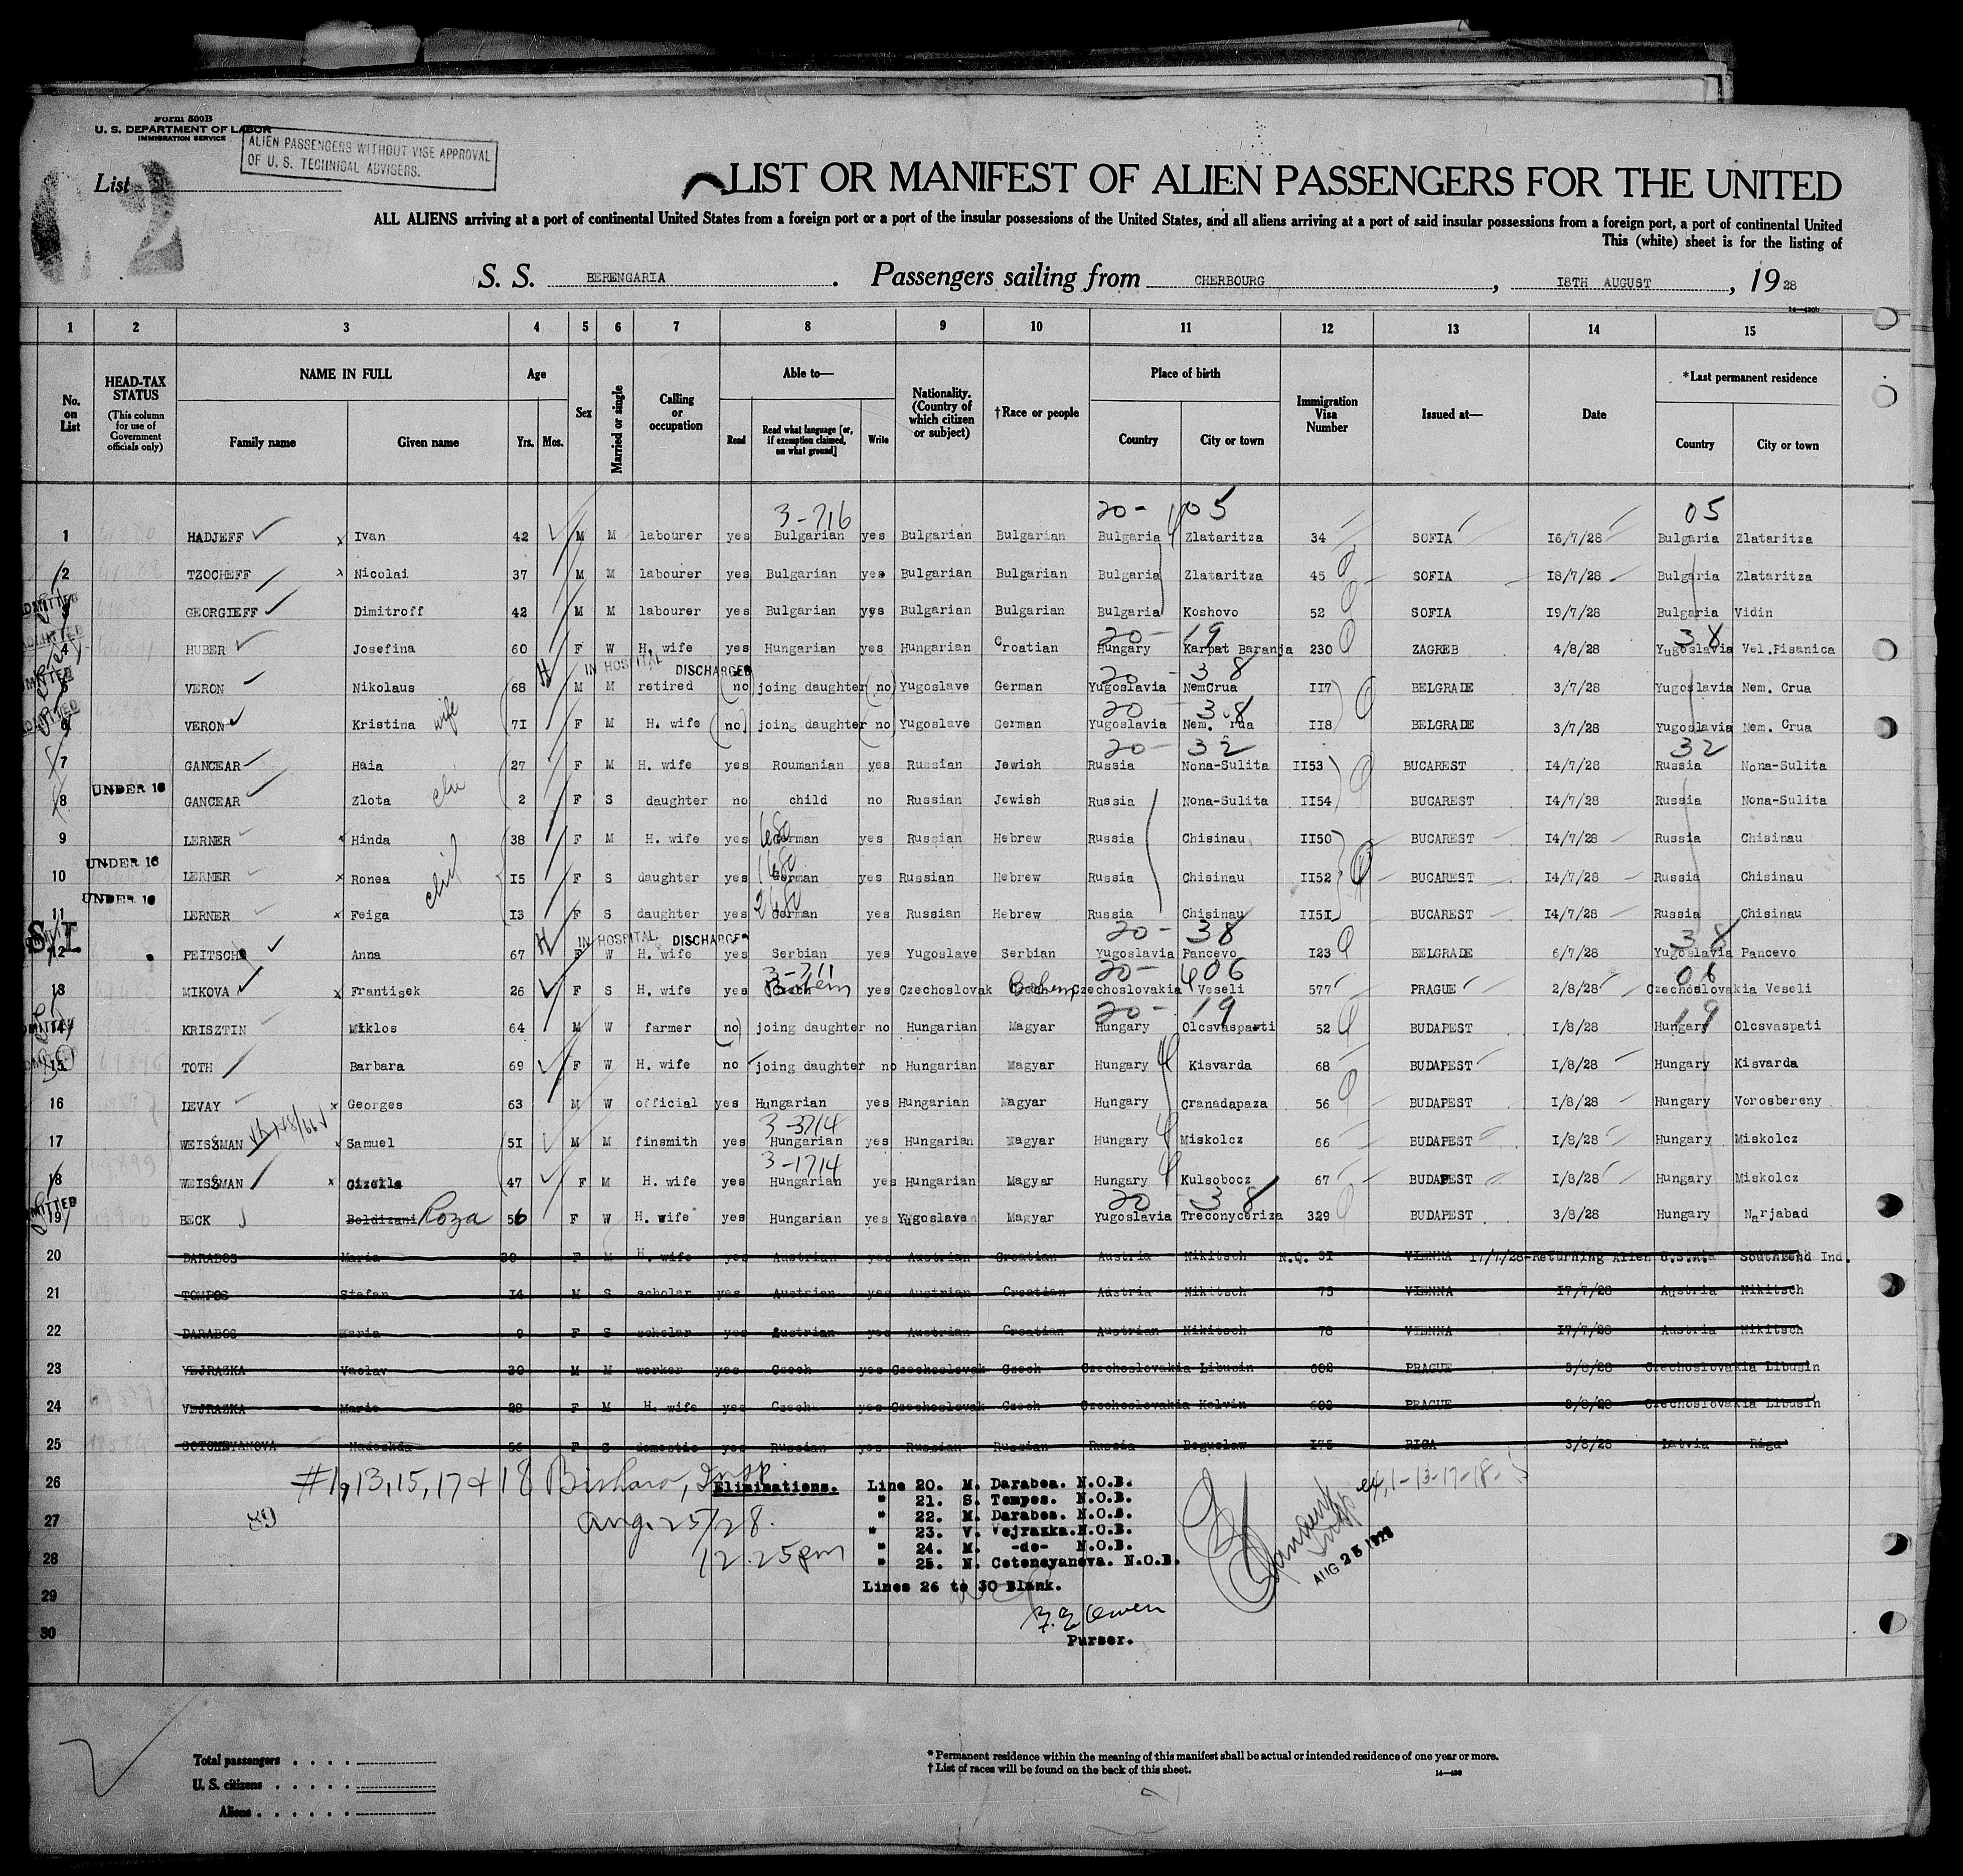 Form 500B
U. S. DEPARTMENT OF LABOR
IMMIGRATION SERVICE
ALIEN PASSENGERS WITHOUT VISE APPROVAL
OF U. S. TECHNICAL ADVISERS.
List
2
LIST OR MANIFEST OF ALIEN PASSENGERS FOR THE UNITED
ALL ALIENS arriving at a port of continental United States from a foreign port or a port of the insular possessions of the United States, and all aliens arriving at a port of said insular possessions from a foreign port, a port of continental United
This (white) sheet is for the listing of
S. S. BERENGARIA. Passengers sailing from CHERBOURG, 18TH AUGUST, 1928
1 2 3 4 5 6 7 8 9 10 11 12 13 14 15
No. on List
HEAD-TAX STATUS (This column for use of Government officials only)
NAME IN FULL Family name Given name
Age Yrs. Mos.
Sex
Married or single
Calling or occupation
Able to— Read Read what language [or, if exemption claimed, on what ground] Write
Nationality. (Country of which citizen or subject)
†Race or people
Place of birth Country City or town
Immigration Visa Number
Issued at—
Date
*Last permanent residence Country City or town
3-716 20- 05 05
1 HADJEFF x Ivan 42 M M labourer yes Bulgarian yes Bulgarian Bulgarian Bulgaria Zlataritza 34 SOFIA 16/7/28 Bulgaria Zlataritza
2 TZOCHEFF x Nicolai 37 M M labourer yes Bulgarian yes Bulgarian Bulgarian Bulgaria Zlataritza 45 SOFIA 18/7/28 Bulgaria Zlataritza
3 GEORGIEFF Dimitroff 42 M M labourer yes Bulgarian yes Bulgarian Bulgarian Bulgaria Koshovo 52 SOFIA 19/7/28 Bulgaria Vidin
ADMITTED 20- 19 38
4 HUBER Josefina 60 F W H. wife yes Hungarian yes Hungarian Croatian Hungary Karpat Baranja 230 ZAGREB 4/8/28 Yugoslavia Vel.Pisanica
H IN HOSPITAL DISCHARGED 20 - 38
5 VERON Nikolaus 68 M M retired (no) joing daughter (no) Yugoslave German Yugoslavia NemCrua 117 BELGRADE 3/7/28 Yugoslavia Nem. Crua
20 - 38
6 VERON Kristina wife 71 F M H. wife (no) joing daughter no Yugoslave German Yugoslavia Nem. rua 118 BELGRADE 3/7/28 Yugoslavia Nem. Crua
20- 32 32
7 GANCEAR Haia 27 F M H. wife yes Roumanian yes Russian Jewish Russia Nona-Sulita 1153 BUCAREST 14/7/28 Russia Nona-Sulita
UNDER 16
8 GANCEAR Zlota 2 F S daughter no child no Russian Jewish Russia Nona-Sulita 1154 BUCAREST 14/7/28 Russia Nona-Sulita
9 LERNER x Hinda 38 F M H. wife yes German yes Russian Hebrew Russia Chisinau 1150 BUCAREST 14/7/28 Russia Chisinau
UNDER 16
10 LERNER x Ronea 15 F S daughter yes German yes Russian Hebrew Russia Chisinau 1152 BUCAREST 14/7/28 Russia Chisinau
UNDER 16
11 LERNER x Feiga 13 F S daughter yes German yes Russian Hebrew Russia Chisinau 1151 BUCAREST 14/7/28 Russia Chisinau
SI H IN HOSPITAL DISCHARGED 20- 38 38
12 PEITSCH Anna 67 F W H. wife yes Serbian yes Yugoslave Serbian Yugoslavia Pancevo 123 BELGRADE 6/7/28 Yugoslavia Pancevo
3-711 20- 406 06
13 MIKOVA x Frantisek 26 F S H. wife yes Bohem yes Czechoslovak Bohem Czechoslovakia Veseli 577 PRAGUE 2/8/28 Czechoslovakia Veseli
20- 19 19
14 KRISZTIN Miklos 64 M W farmer (no) joing daughter no Hungarian Magyar Hungary Olcsvaspati 52 BUDAPEST 1/8/28 Hungary Olcsvaspati
15 TOTH Barbara 69 F W H. wife no joing daughter no Hungarian Magyar Hungary Kisvarda 68 BUDAPEST 1/8/28 Hungary Kisvarda
16 LEVAY x Georges 63 M W official yes Hungarian yes Hungarian Magyar Hungary Cranadapaza 56 BUDAPEST 1/8/28 Hungary Vorosbereny
3-3714
17 WEISSMAN x Samuel 51 M M finsmith yes Hungarian yes Hungarian Magyar Hungary Miskolcz 66 BUDAPEST 1/8/28 Hungary Miskolcz
3-1714
18 WEISSMAN x Gizella 47 F M H. wife yes Hungarian yes Hungarian Magyar Hungary Kulsobocz 67 BUDAPEST 1/8/28 Hungary Miskolcz
20 - 38
19 BECK Boldizani Roza 56 F W H. wife yes Hungarian yes Yugoslave Magyar Yugoslavia Treconyceriza 329 BUDAPEST 3/8/28 Hungary Narjabad
20 DARABOS Maria 30 F M H. wife yes Austrian yes Austrian Croatian Austria Nikitsch N.Q. 31 VIENNA 17/7/28-Returning Alien U.S.A. Southbend Ind.
21 TOMPOS Stefan 14 M S scholar yes Austrian yes Austrian Croatian Austria Nikitsch 73 VIENNA 17/7/28 Austria Nikitsch
22 DARABOS Maria 9 F S scholar yes Austrian yes Austrian Croatian Austrian Nikitsch 78 VIENNA 17/7/28 Austria Nikitsch
23 VEJRAZKA Vaclav 30 M M worker yes Czech yes Czechoslovak Czech Czechoslovakia Libusin 602 PRAGUE 3/8/28 Czechoslovakia Libusin
24 VEJRAZKA Marie 28 F M H. wife yes Czech yes Czechoslovak Czech Czechoslovakia Kelvin 603 PRAGUE 3/8/28 Czechoslovakia Libusin
25 Nadeskda 56 F S domestic yes Russian yes Russian Russian Russia Boguslaw 175 RIGA 3/8/28 Latvia Riga
26 #1, 13, 15, 17 & 18 Insp. Eliminations. Line 20. M. Darabos. N.O.B.
" 21. S. Tompos. N.O.B.
27 89 Aug. 25/28. " 22. M. Darabos. N.O.B.
" 23. V. Vejrazka. N.O.B.
28 12.25pm " 24. M. -do- N.O.B.
" 25. N. Coteneyanova. N.O.B.
ex, 1-13-17-18-
AUG 25 1928
29 Lines 26 to 30 Blank.
Owen
30 Purser.
Total passengers
U. S. citizens
Aliens
* Permanent residence within the meaning of this manifest shall be actual or intended residence of one year or more.
† List of races will be found on the back of this sheet.